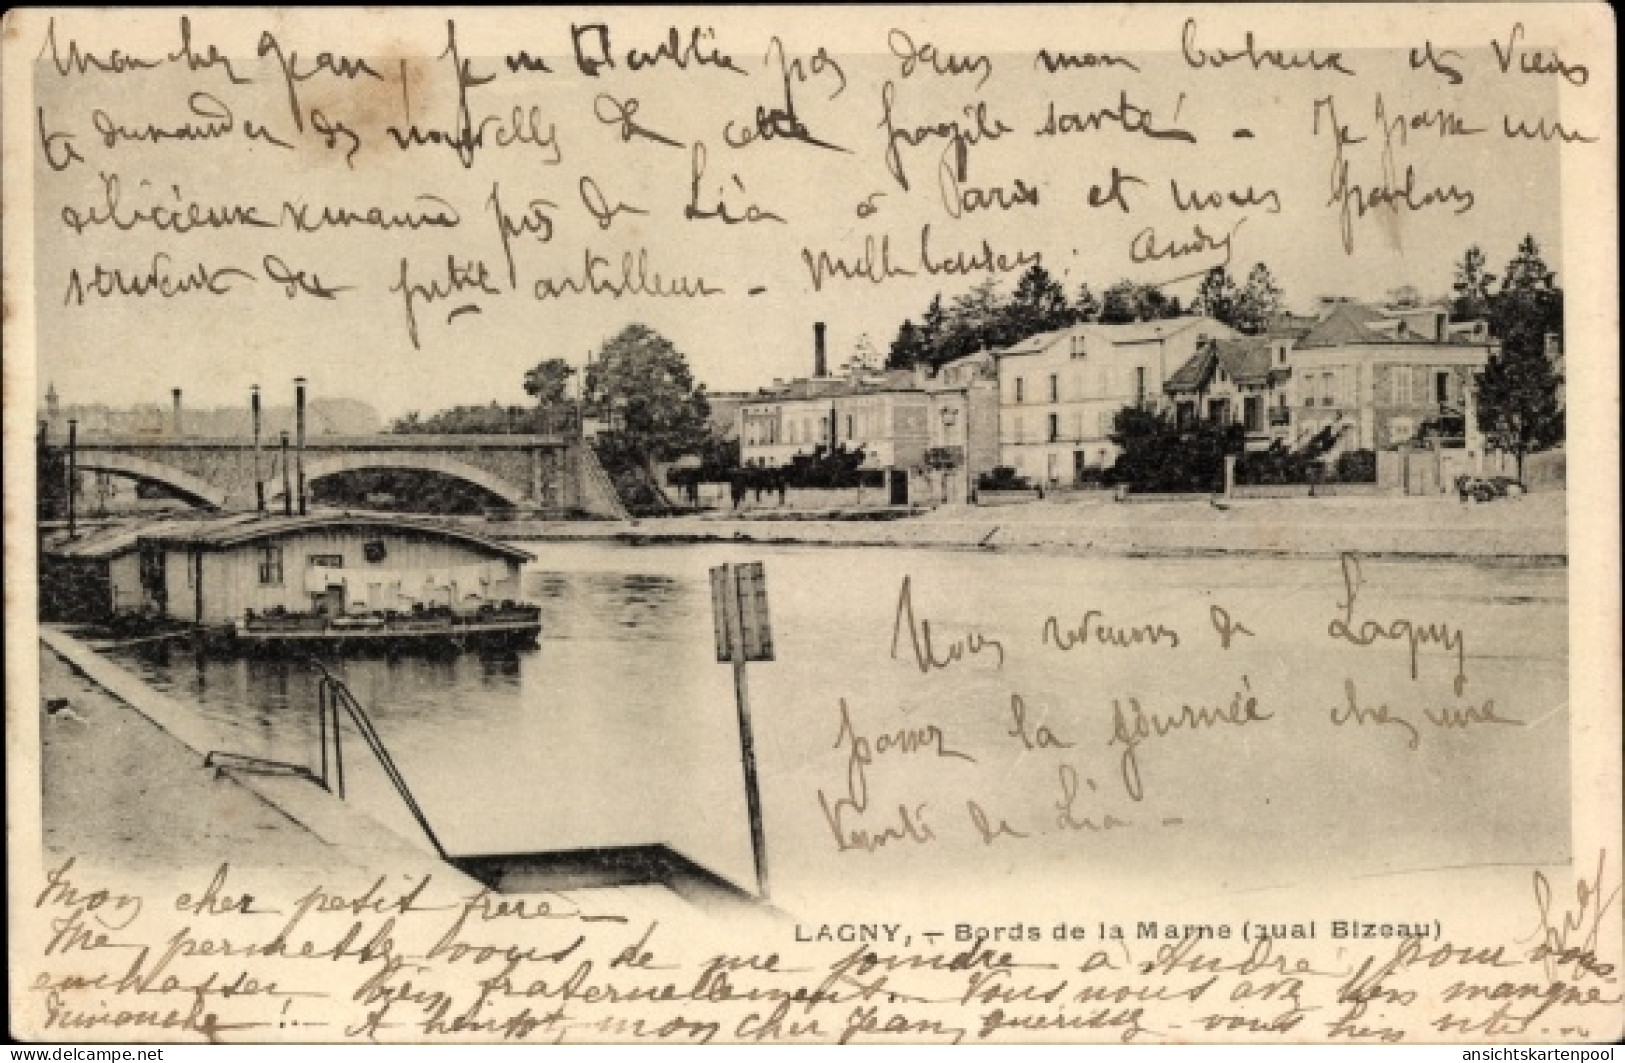 Mon cher Jean, je ne t'oublie pas dans mon bonheur et viens
te demander des nouvelles de cette fragile santé - Je passe une
délicieux semaine près de Lia à Paris et nous parlons
souvent du petit artilleur - Mille baisers. André
Nous revenons de Lagny
passer la journée chez une
tante de Lia -
Mon cher petit frère -
Me permettez vous de me joindre à André, pour vous
embrasser bien fraternellement. Vous nous avez bien manqué
Dimanche !.. - A bientôt mon cher Jean, guérissez-vous bien vite...
LAGNY, - Bords de la Marne (quai Bizeau)
© oldthing.com
ansichtskartenpool